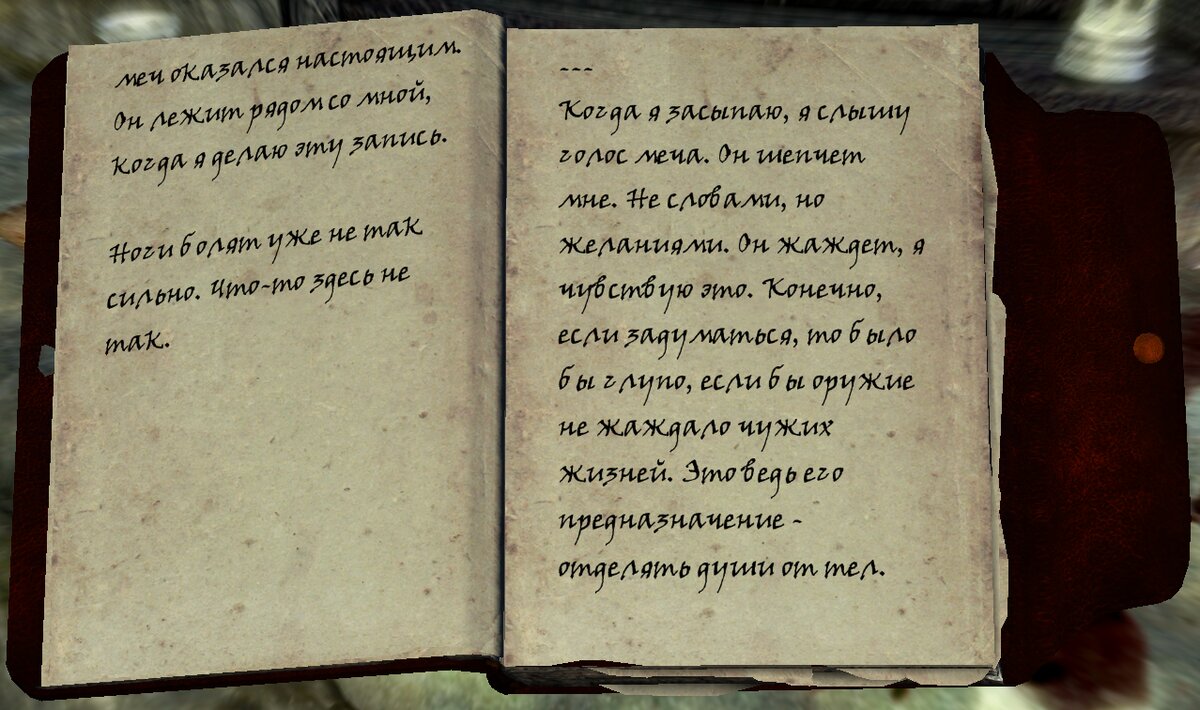 меч оказался настоящим.
Он лежит рядом со мной,
когда я делаю эту запись.
Ноги болят уже не так
сильно. Что-то здесь не
так.
---
Когда я засыпаю, я слышу
голос меча. Он шепчет
мне. Не словами, но
желаниями. Он жаждет, я
чувствую это. Конечно,
если задуматься, то было
бы глупо, если бы оружие
не жаждало чужих
жизней. Это ведь его
предназначение -
отделять души от тел.